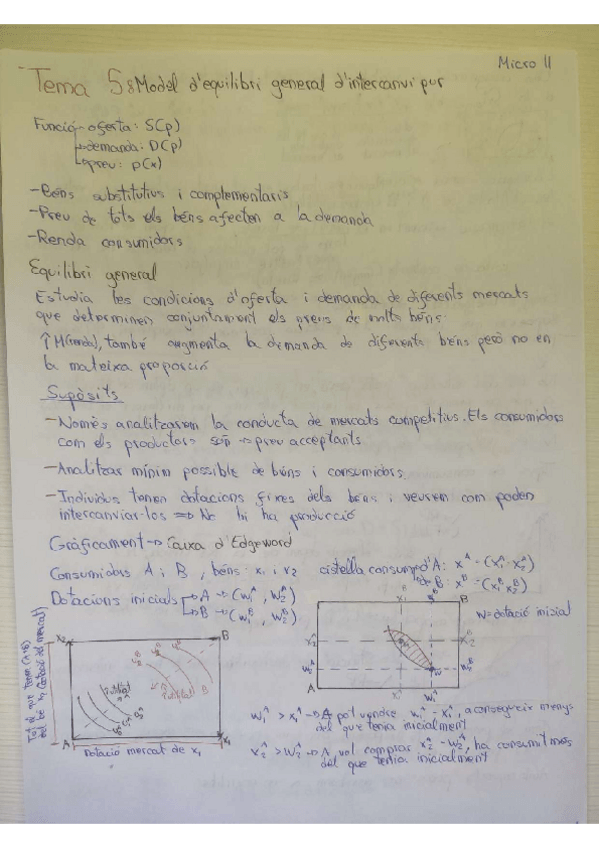 Micro II
Tema 5: Model d'equilibri general d'intercanvi pur
Funció oferta: S(p)
demanda: D(p)
preu: p(x)
-Béns substitutius i complementaris
-Preu de tots els béns afecten a la demanda
-Renda consumidors
Equilibri general
Estudia les condicions d'oferta i demanda de diferents mercats
que determinen conjuntament els preus de molts béns.
↑M(renda), també augmenta la demanda de diferents béns però no en
la mateixa proporció
Supòsits
-Només analitzarem la conducta de mercats competitius. Els consumidors
com els productors són → preu acceptants
-Analitzar mínim possible de béns i consumidors.
-Individus tenen dotacions fixes dels béns i veurem com poden
intercanviar-los ⇒ No hi ha producció
Gràficament → Caixa d'Edgeword
Consumidors A i B, béns: x₁ i x₂
cistella consum d'A: xᴬ = (x₁ᴬ x₂ᴬ)
de B: xᴮ = (x₁ᴮ x₂ᴮ)
Dotacions inicials → A → (w₁ᴬ, w₂ᴬ)
→ B → (w₁ᴮ, w₂ᴮ)
W = dotació inicial
x₂ B
A x₁
Dotació mercat de x₁
x₁ᴮ B
x₂ᴬ x₂ᴮ
w₂ᴬ w w₂ᴮ
A x₁ᴬ w₁ᴬ
w₁ᴬ > x₁ᴬ → A pot vendre w₁ᴬ - x₁ᴬ, aconsegueix menys
del que tenia inicialment
x₂ᴬ > w₂ᴬ → A vol comprar x₂ᴬ - w₂ᴬ, ha consumit més
del que tenia inicialment